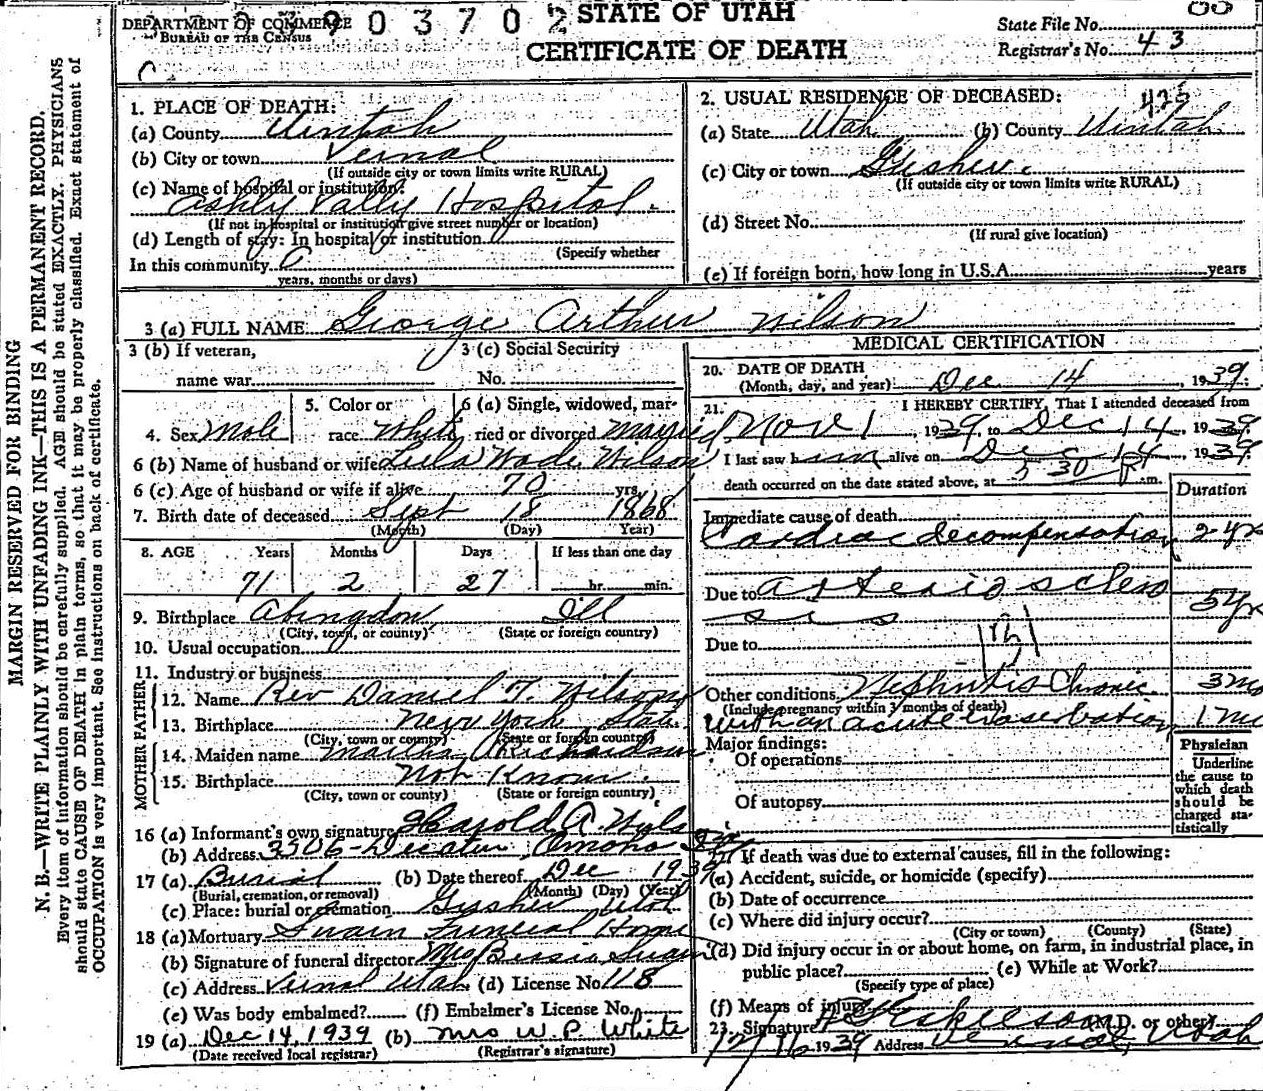 DEPARTMENT OF COMMERCE
BUREAU OF THE CENSUS
3903702
STATE OF UTAH
CERTIFICATE OF DEATH
State File No.
Registrar's No. 43
MARGIN RESERVED FOR BINDING
N. B.—WRITE PLAINLY WITH UNFADING INK—THIS IS A PERMANENT RECORD.
Every item of information should be carefully supplied. AGE should be stated EXACTLY. PHYSICIANS
should state CAUSE OF DEATH in plain terms, so that it may be properly classified. Exact statement of
OCCUPATION is very important. See instructions on back of certificate.
1. PLACE OF DEATH:
(a) County Uintah
(b) City or town Vernal
(If outside city or town limits write RURAL)
(c) Name of hospital or institution:
Ashly Vally Hospital.
(If not in hospital or institution give street number or location)
(d) Length of stay: In hospital or institution
(Specify whether
In this community
years, months or days)
2. USUAL RESIDENCE OF DECEASED:
(a) State Utah (b) County Uintah
(c) City or town Gusher.
(If outside city or town limits write RURAL)
(d) Street No.
(If rural give location)
(e) If foreign born, how long in U.S.A. years
3 (a) FULL NAME George Arthur Wilson
3 (b) If veteran,
name war
3 (c) Social Security
No.
4. Sex Male
5. Color or
race White
6 (a) Single, widowed, mar-
ried or divorced Married
6 (b) Name of husband or wife Lula Wade Wilson
6 (c) Age of husband or wife if alive 70 yrs.
7. Birth date of deceased Sept 18 1868
(Month) (Day) Year)
8. AGE Years Months Days If less than one day
71 2 27 hr. min.
9. Birthplace Abingdon, Ill
(City, town, or county) (State or foreign country)
10. Usual occupation
11. Industry or business
FATHER
12. Name Rev Daniel T. Wilson
13. Birthplace New York State
(City, town or county) (State or foreign country)
MOTHER
14. Maiden name Martha Richardson
15. Birthplace Not Known.
(City, town or county) (State or foreign country)
16 (a) Informant's own signature Harold A. Wilson
(b) Address 3506 - Decatur, Omaha
17 (a) Burial (b) Date thereof Dec 1939
(Burial, cremation, or removal) (Month) (Day) (Year)
(c) Place: burial or cremation Gusher Utah
18 (a) Mortuary Swain Funeral Home
(b) Signature of funeral director Mrs Bessie Swain
(c) Address Vernal Utah (d) License No. 118
(e) Was body embalmed? (f) Embalmer's License No.
19 (a) Dec 14, 1939 (b) Mrs W. P. White
(Date received local registrar) (Registrar's signature)
MEDICAL CERTIFICATION
20. DATE OF DEATH
(Month, day, and year) Dec 14, 1939
21. I HEREBY CERTIFY, That I attended deceased from
Nov 1, 1939, to Dec 14, 1939
I last saw him alive on Dec 14, 1939
death occurred on the date stated above, at 5 30 P.m.
Duration
Immediate cause of death
Cardiac decompensation 2-yrs
Due to arteriosclero
sis 5yrs
Due to
Other conditions Nephritis Chronic 3mo
(Include pregnancy within 3 months of death)
with an acute exaserbation 1 mo
Major findings:
Of operations
Of autopsy
Physician
Underline
the cause to
which death
should be
charged sta-
tistically
22. If death was due to external causes, fill in the following:
(a) Accident, suicide, or homicide (specify)
(b) Date of occurrence
(c) Where did injury occur?
(City or town) (County) (State)
(d) Did injury occur in or about home, on farm, in industrial place, in
public place? (e) While at Work?
(Specify type of place)
(f) Means of injury
23. Signature (M.D. or other)
12/16 1939 Address Vernal, Utah